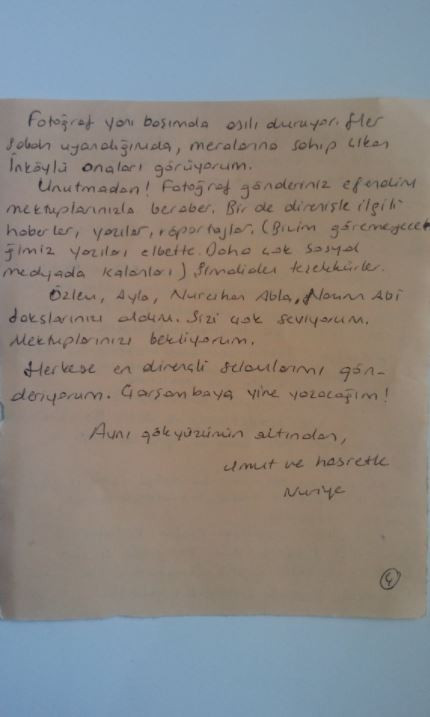 Fotoğraf yanı başımda asılı duruyor. Her
sabah uyandığımda, meralarına sahip çıkan
İnköylü anaları görüyorum.
Unutmadan! Fotoğraf gönderiniz efendim
mektuplarınızla beraber. Bir de direnişle ilgili
haberler, yazılar, röportajlar. (Bizim göremeyecek
ğimiz yazıları elbette. Daha çok sosyal
medyada kalanları) Şimdiden teşekkürler.
Özlem, Ayla, Nurcihan Abla, Abi
sizi çok seviyorum.
Mektuplarınızı bekliyorum.
Herkese en dirençli selamlarımı gön-
deriyorum. Çarşambaya yine yazacağım!
Aynı gökyüzünün altından,
umut ve hasretle
Nuriye
4